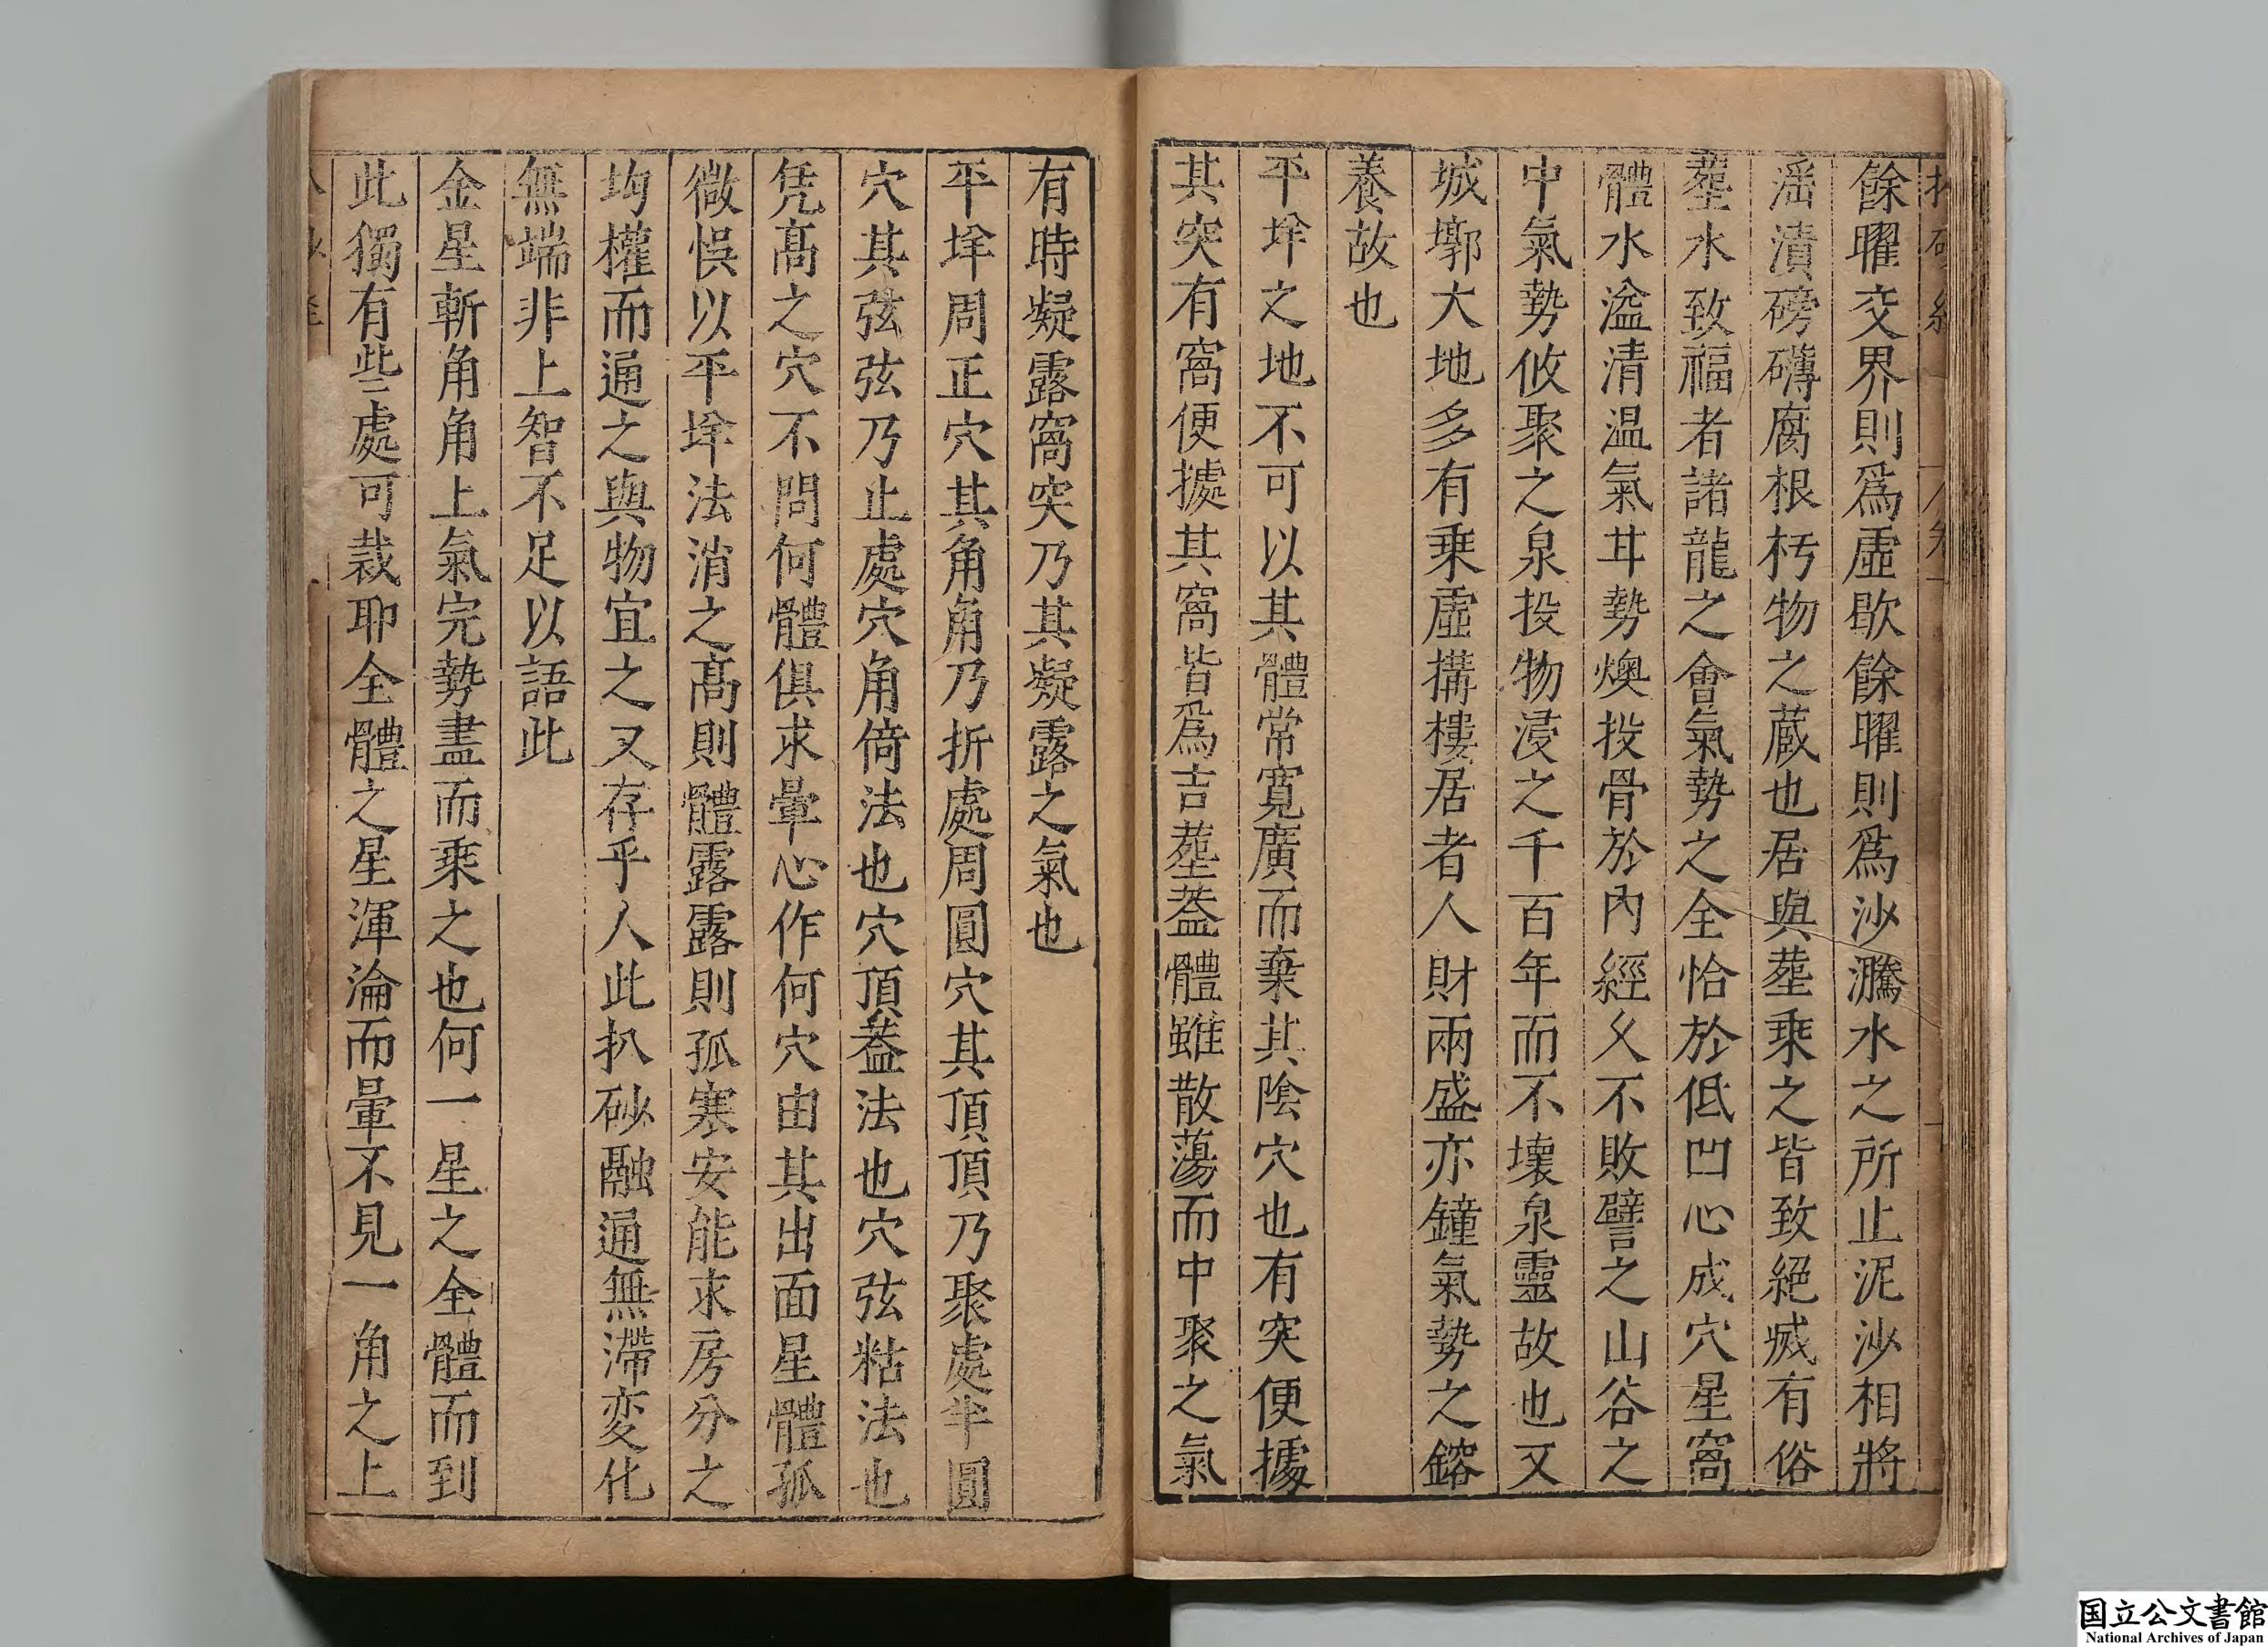 餘曜交界則爲虛歇餘曜則爲沙灁水之所止泥沙相將
滛漬磅礴腐根朽物之蔵也居與塟乘之皆致絕滅有俗
塟水致福者諸龍之會氣勢之全恰於低凹心成穴星窩
體水溢清温氣甘勢燠投骨於內經乆不敗譬之山谷之
中氣勢攸聚之泉投物浸之千百年而不壞泉靈故也又
城墎大地多有乘虛搆樓居者人財兩盛亦鐘氣勢之鎔
養故也
平垟之地不可以其體常寬廣而棄其陰穴也有突便據
其突有窩便據其窩皆爲吉塟葢體雖散蕩而中聚之氣
有時凝露窩突乃其凝露之氣也
平垟周正穴其角角乃折處周圓穴其頂頂乃聚處半圓
穴其弦弦乃止處穴角倚法也穴頂葢法也穴弦粘法也
凭髙之穴不問何體俱求暈心作何穴由其出面星體孤
微悞以平垟法消之髙則體露露則孤寒安能求房分之
均權而通之與物宜之又存乎人此扒砂融通無滯変化
無端非上智不足以語此
金星斬角角上氣完勢盡而乘之也何一星之全體而到
此獨有些處可裁耶全體之星渾淪而暈不見一角之上
国立公文書館
National Archives of Japan